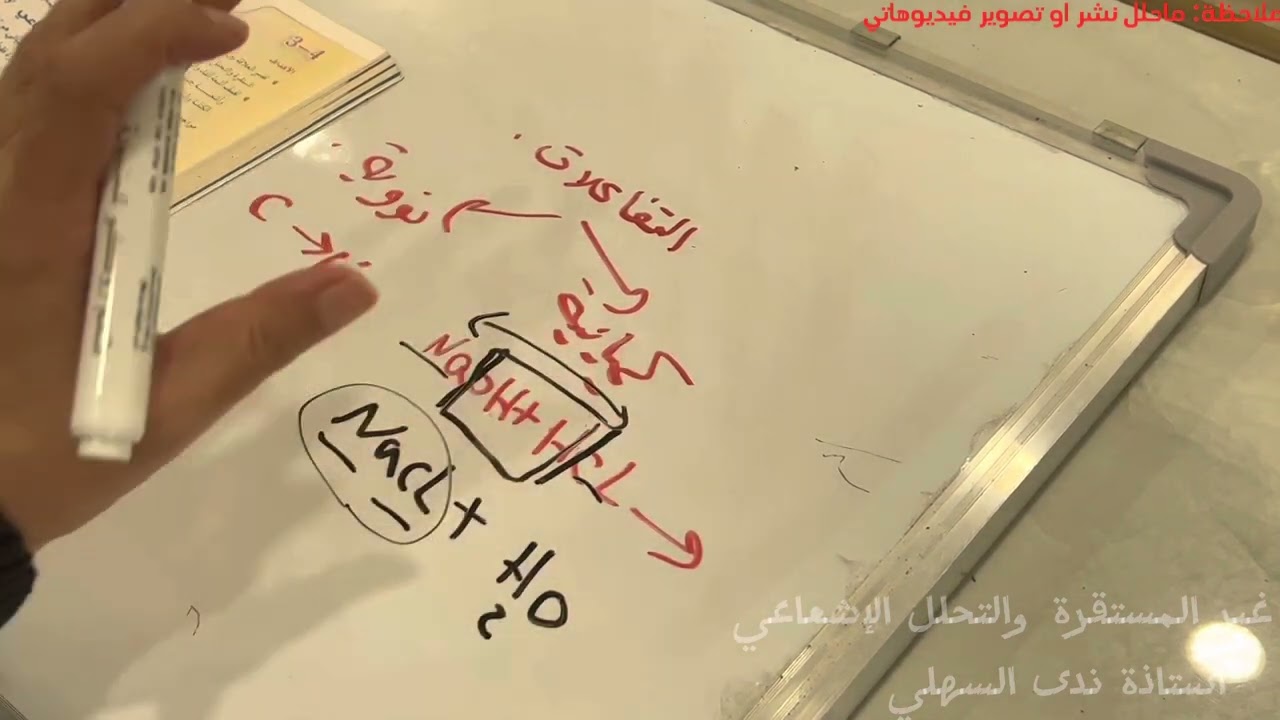 ملاحظة: ماحلل نشر او تصوير فيديوهاتي
3-4
الأهداف
التفاعلات
نووية
C →
كيميائية
NaOH + HCL →
NaCL + H2O
غير المستقرة والتحلل الإشعاعي
الستاذة ندى السهلي